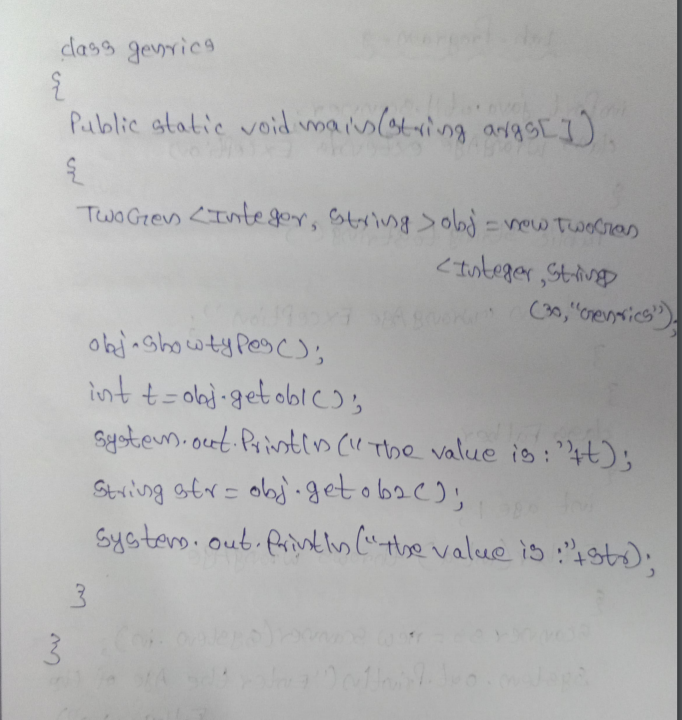 class genrics
{
Public static void main(String args[])
{
TwoGen <Integer, String> obj = new TwoGen
<Integer, String>
(30, "Genrics");
obj.showtypes();
int t = obj.getob1();
System.out.Println("The value is:"+t);
String str = obj.getob2();
System.out.Println("The value is:"+str);
}
}